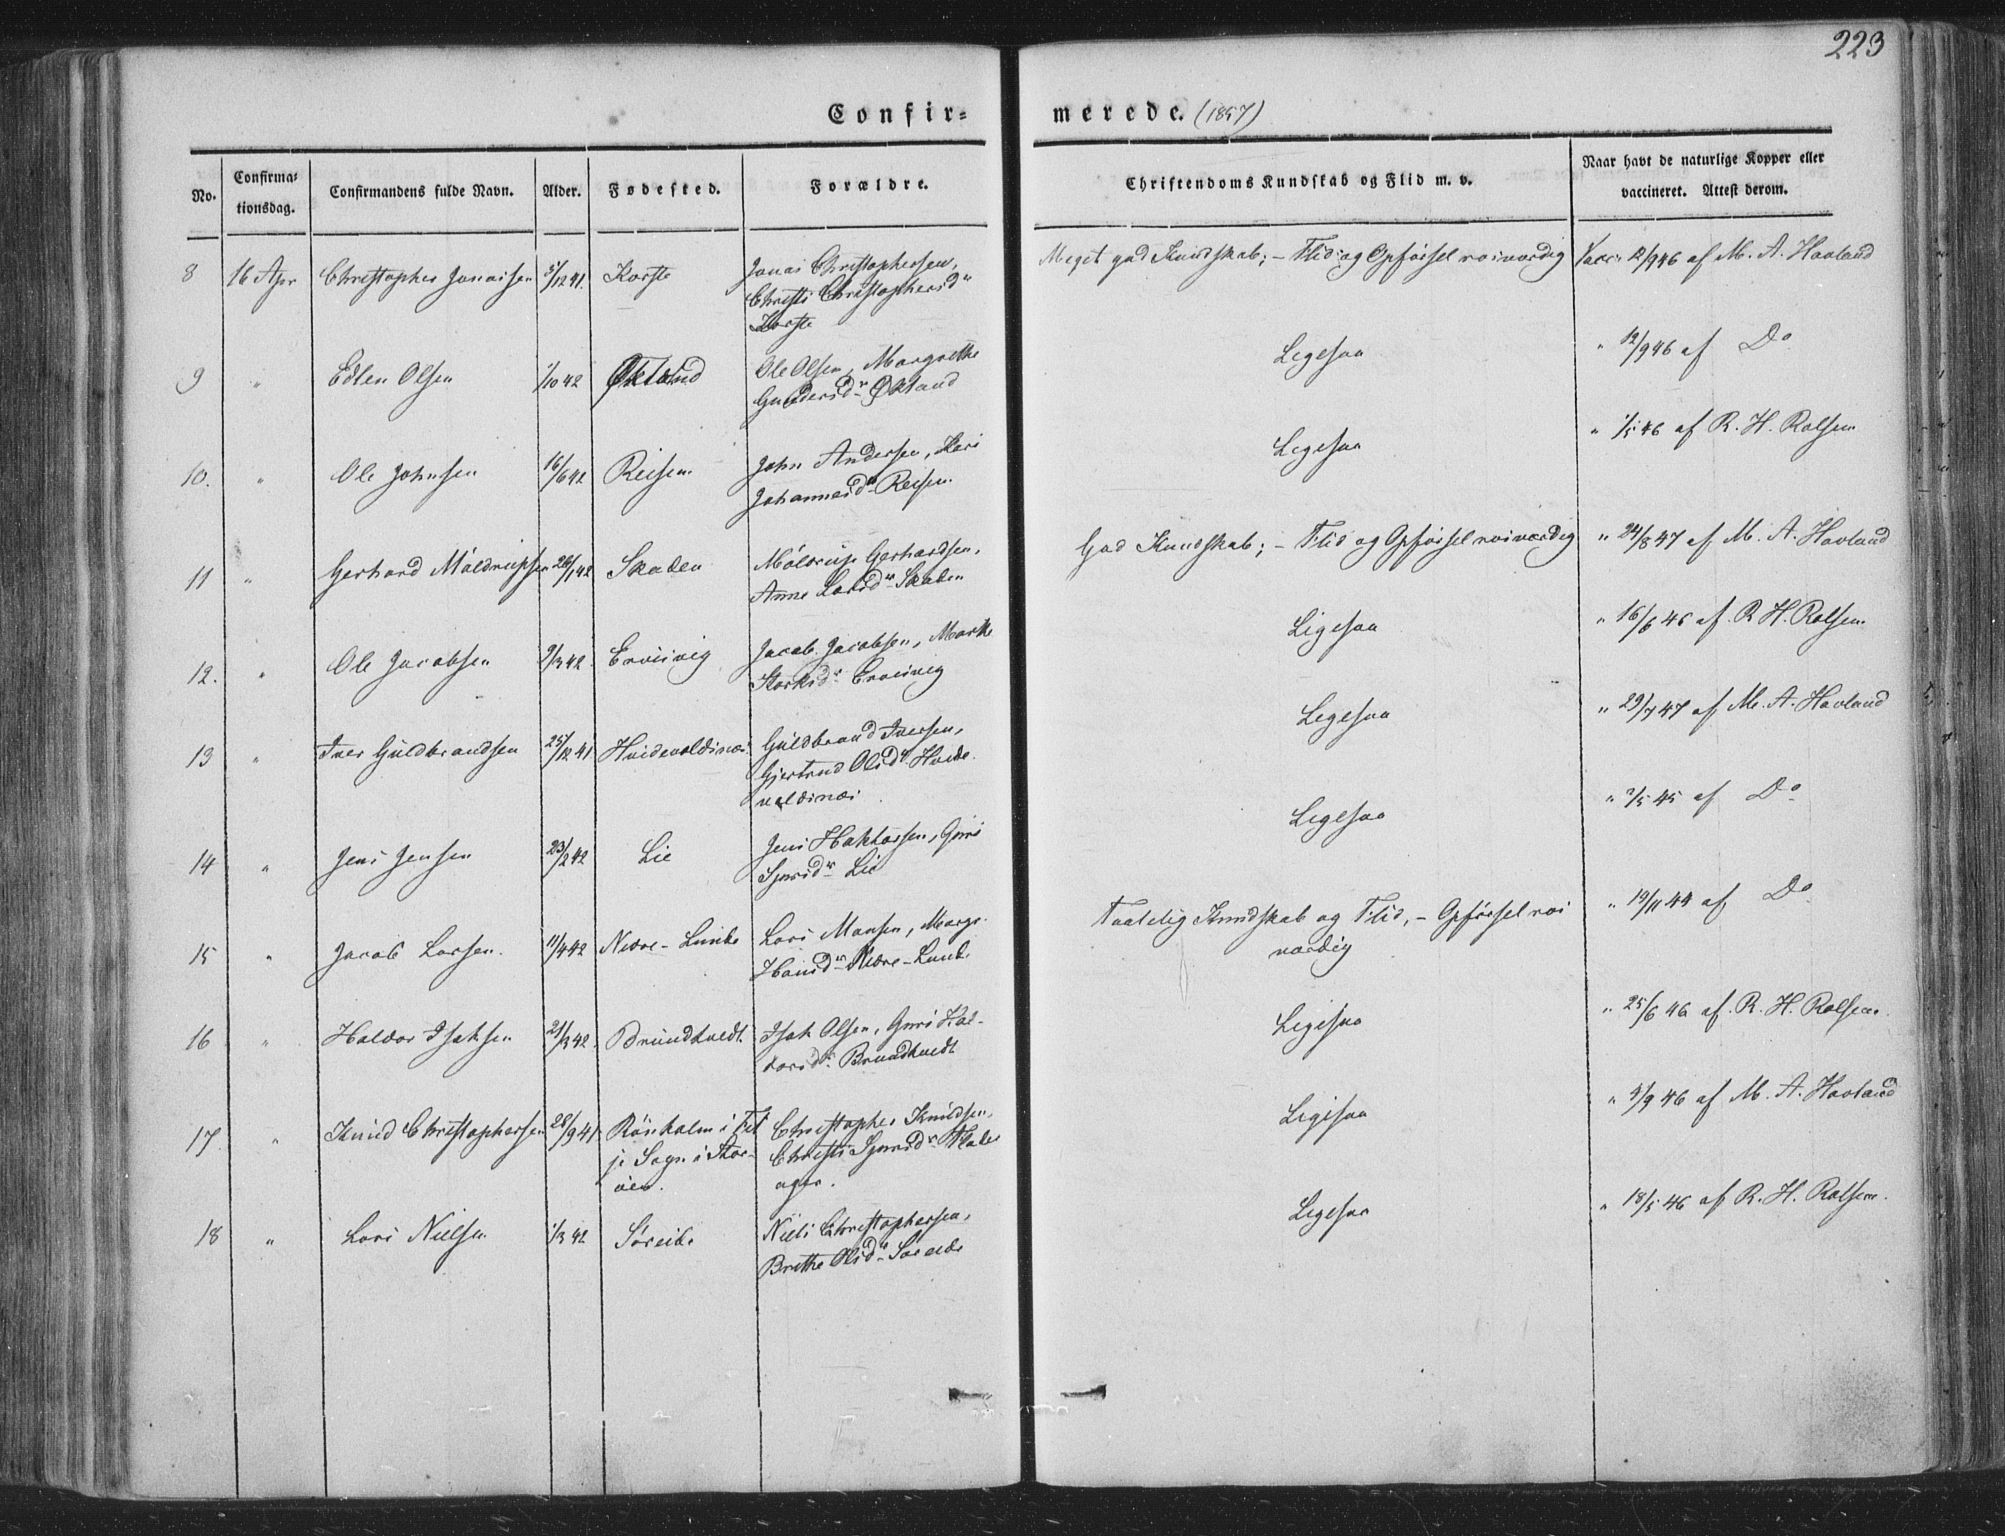 223
Confir= merede. (1857)
No. Confirma- tionsdag. Confirmandens fulde Navn. Alder. Fødested. Forældre. Christendoms Kundskab og Flid m. v. Naar havt de naturlige Kopper eller vaccineret. Attest derom.
8 16 Apr Christopher Jonassen 5/12 41. Jonas Christophersen, Meget god Kundskab; – Flid og Opførsel roisværdig Vacc. 12/9 46 af M. A. Havland
Christi Christophersd
9 " Edlen Olsen 1/10 42 Økland Ole Olsen, Margrethe Ligesaa " 12/9 46 af Do
Gundersd Økland
10. " Ole Johnsen 16/6 42 Reisen John Andersen, Kari Ligesaa " 1/5 46 af R. H. Rolfsen
Johannesd Reisen.
11 " Gerhard Möldrupsen 26/1 42 Skaden Möldrup Gerhardsen, God Kundskab; – Flid og Opførsel roisværdig " 24/8 47 af M. A. Havland
Anne Larsd Skaden
12. " Ole Jacobsen 9/3 42. Ervisvig Jacob Jacobsen, Marthe Ligesaa " 16/6 46 af R H. Rolfsen
Ervisvig
13 " Iver Guldbrandsen 25/12 41 Guldbrand Iversen, Ligesaa " 29/7 47 af M. A. Havland
Gjertrud Olsd Hvide-
14 " Jens Jensen 23/2 42 Lie Ligesaa " 2/5 45 af Do
Lie
15 " Jacob Larsen. 11/4 42 Nedre-Lunde Lars Monsen, Marge. Taalelig Kundskab og Flid, – Opførsel rois " 19/11 44 af Do
Hansd Nedre-Lunde værdig
16 " Haldor Isaksen 21/3 42. Brundtvedt Isak Olsen, Guri Hal- Ligesaa " 25/6 46 af R. H. Rolfsen.
dorsd Brundtvedt
17. " Knud Christophersen 28/9 41. i Fit Christopher Knudsen, Ligesaa " 4/9 46 af M. A. Havland
je Sogn i Stor- Christi Sjursd
öen. ager.
18 " Lars Nielsen 1/3 42 Söreide Niels Christophersen, Ligesaa " 18/5 46 af R. H. Rolfsen.
Brithe Olsd Söreide